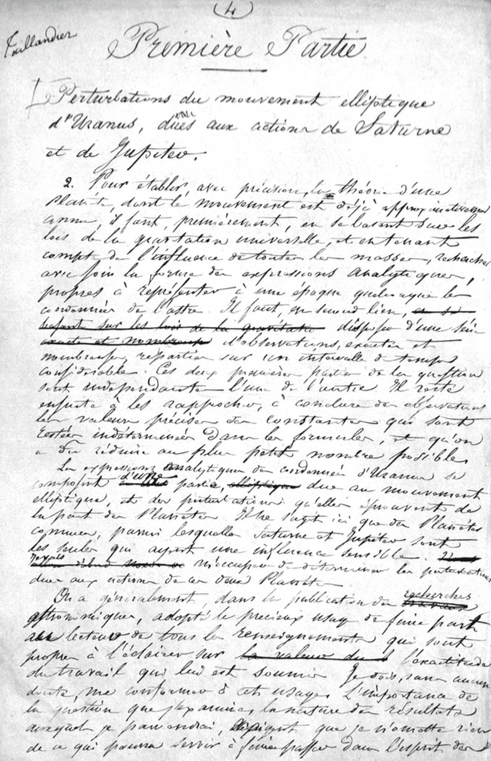 (4)
Taillandier
Première Partie
Perturbations du mouvement elliptique
d'Uranus, dues aux actions de Saturne
et de Jupiter.
2. Pour établir, avec précision, la théorie d'une
Planète, dont le mouvement est déjà approximativement
connu, il faut, premièrement, en se basant sur les
lois de la gravitation universelle, et en tenant
compte de l'influence de toutes les masses, rechercher
avec soin la forme des expressions analytiques,
propres à représenter à une époque quelconque les
coordonnées de l'astre. Il faut, en second lieu, en se
basant sur les lois de la gravitation disposer d'une série
exacte et nombreuse d'observations, exactes et
nombreuses, réparties sur un intervalle de temps
considérable. Ces deux premières parties de la question
sont indépendantes l'une de l'autre. Il reste
ensuite à les rapprocher, à conclure des observations
les valeurs précises des constantes qui sont
restées indéterminées dans les formules, et qu'on
a dû réduire au plus petit nombre possible.
Les expressions analytiques des coordonnées d'Uranus se
composent d'une partie elliptique due au mouvement
elliptique, et des perturbations qu'elles éprouvent de
la part des Planètes. Il ne s'agit ici que des Planètes
connues, parmi lesquelles Saturne et Jupiter sont
les seules qui aient une influence sensible.
m'occuper de déterminer les perturbations
dues aux actions de ces deux Planètes.
On a généralement, dans la publication des recherches
astronomiques, adopté le précieux usage de faire part
au lecteur de tous les renseignements qui sont
propres à l'éclairer sur la valeur de l'exactitude
du travail qui lui est soumis. Je dois, sans aucun
doute, me conformer à cet usage. L'importance de
la question que j'examine, la nature des résultats
auxquels je parviendrai, exigent que je n'omette rien
de ce qui pourra servir à faire passer dans l'esprit des